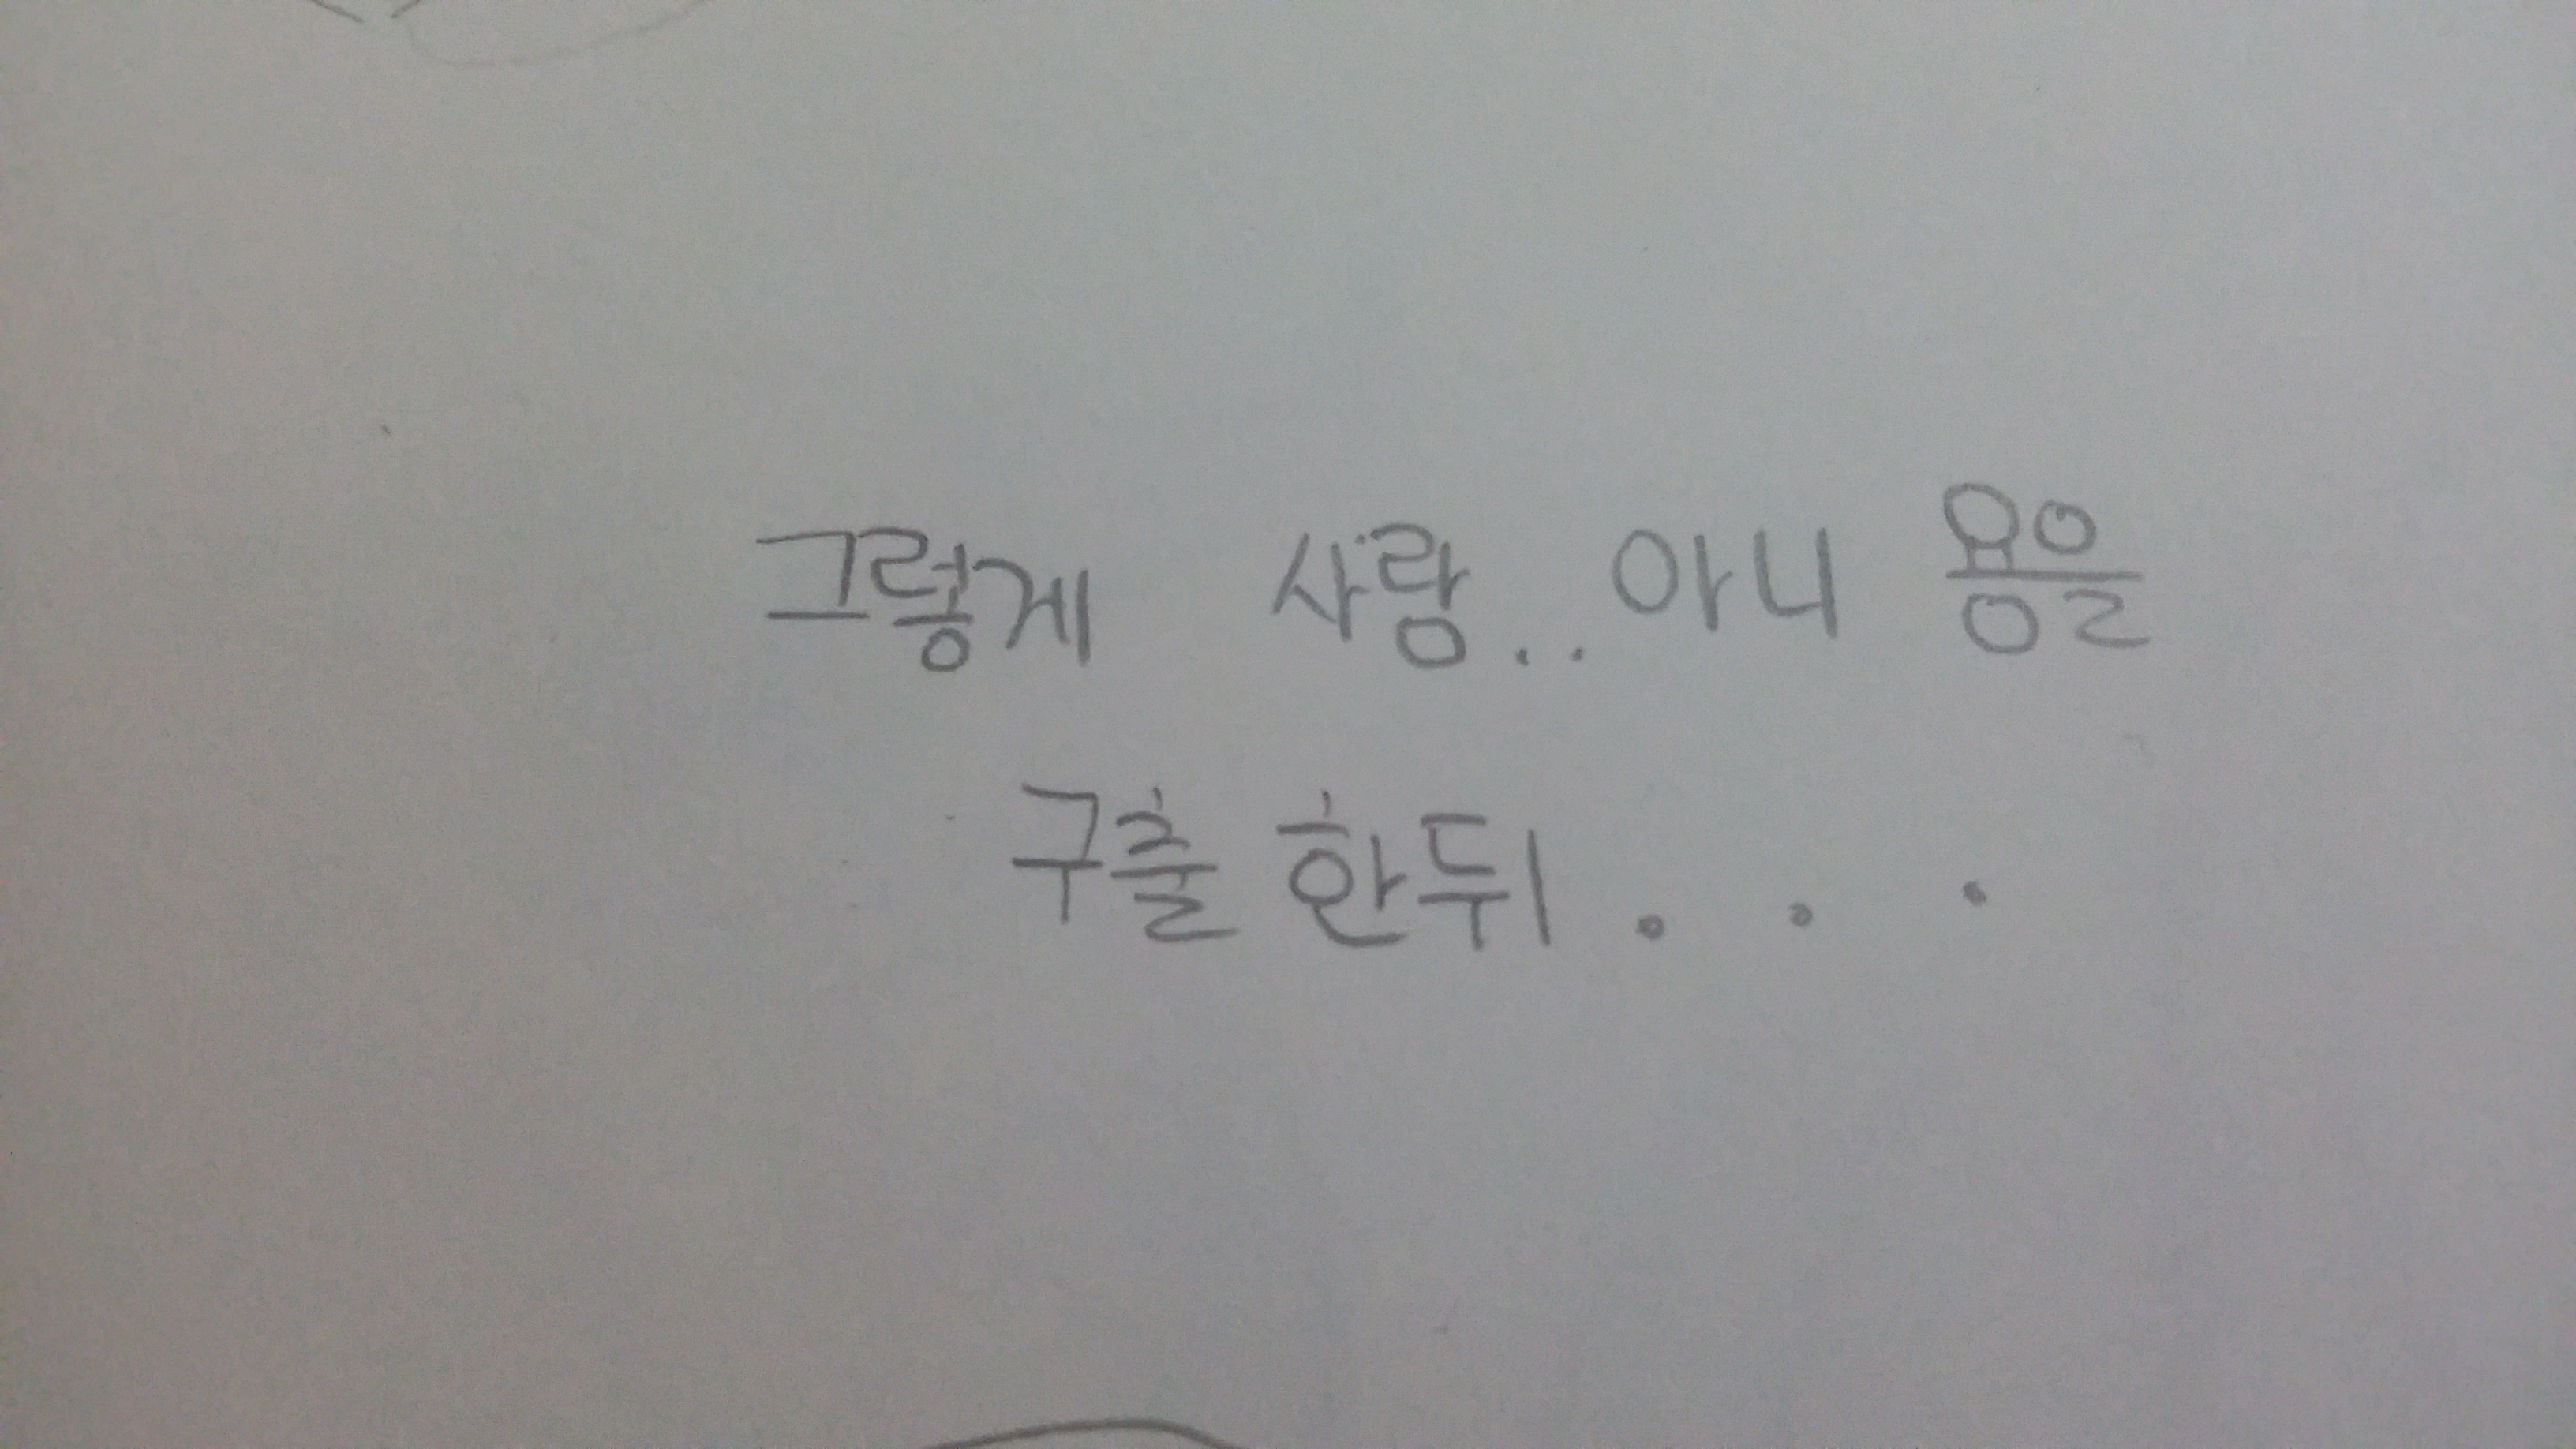 그렇게 사랑..아니 용을
구출한뒤...